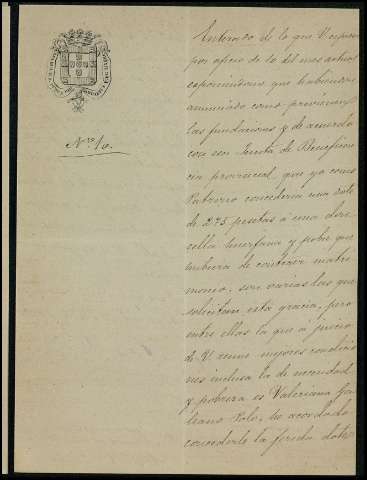 Nº 10.
Enterado de lo que V. expone
por oficio de 10 del mes actual
esponiendome que habiendose
anunciado como previenen
las fundaciones y de acuerdo
con esa Junta de Beneficen
cia provincial que yo como
Patrono concederia una dote
de 275 pesetas á una don
cella huerfana y pobre que
hubiera de contraer matri
monio, son varias las que
solicitan esta gracia, pero
entre ellas la que á juicio
de V. reune mejores condicio
nes inclusa la de necesidad
y pobreza es Valeriana
Polo, he acordado
concederle la dote